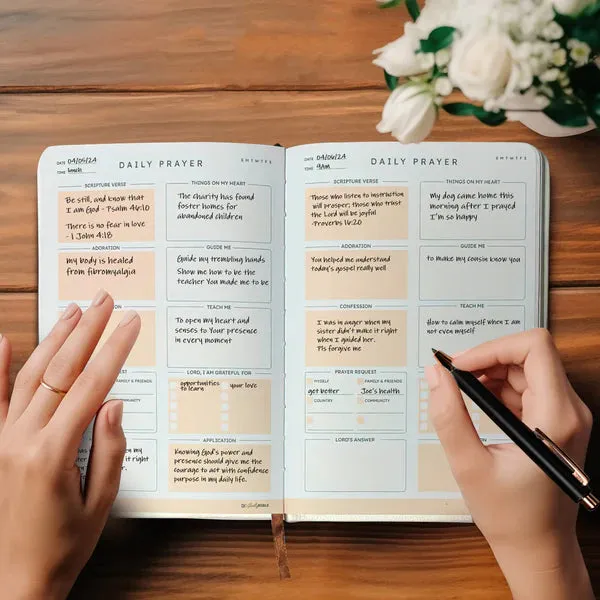 DATE 04/05/24
TIME lunch
DAILY PRAYER
S M T W T F S
SCRIPTURE VERSE
Be still, and know that
I am God - Psalm 46:10
There is no fear in love
- 1 John 4:18
THINGS ON MY HEART
The charity has found
foster homes for
abandoned children
ADORATION
my body is healed
from fibromyalgia
GUIDE ME
Guide my trembling hands
Show me how to be the
teacher You made me to be
TEACH ME
To open my heart and
senses to Your presence
in every moment
FAMILY & FRIENDS
COMMUNITY
LORD, I AM GRATEFUL FOR
opportunities
to learn
your love
APPLICATION
Knowing God's power and
presence should give me the
courage to act with confidence
purpose in my daily life.
DATE 04/06/24
TIME 9am
DAILY PRAYER
S M T W T F S
SCRIPTURE VERSE
Those who listen to instruction
will prosper; those who trust
the Lord will be joyful
-Proverbs 16:20
THINGS ON MY HEART
My dog came home this
morning after I prayed
I'm so happy
ADORATION
You helped me understand
today's gospel really well
GUIDE ME
to make my cousin know you
CONFESSION
I was in anger when my
sister didn't make it right
when I guided her.
Pls forgive me
TEACH ME
How to calm myself when I am
not even myself
PRAYER REQUEST
MYSELF
get better
FAMILY & FRIENDS
Joe's health
COUNTRY
COMMUNITY
LORD'S ANSWER